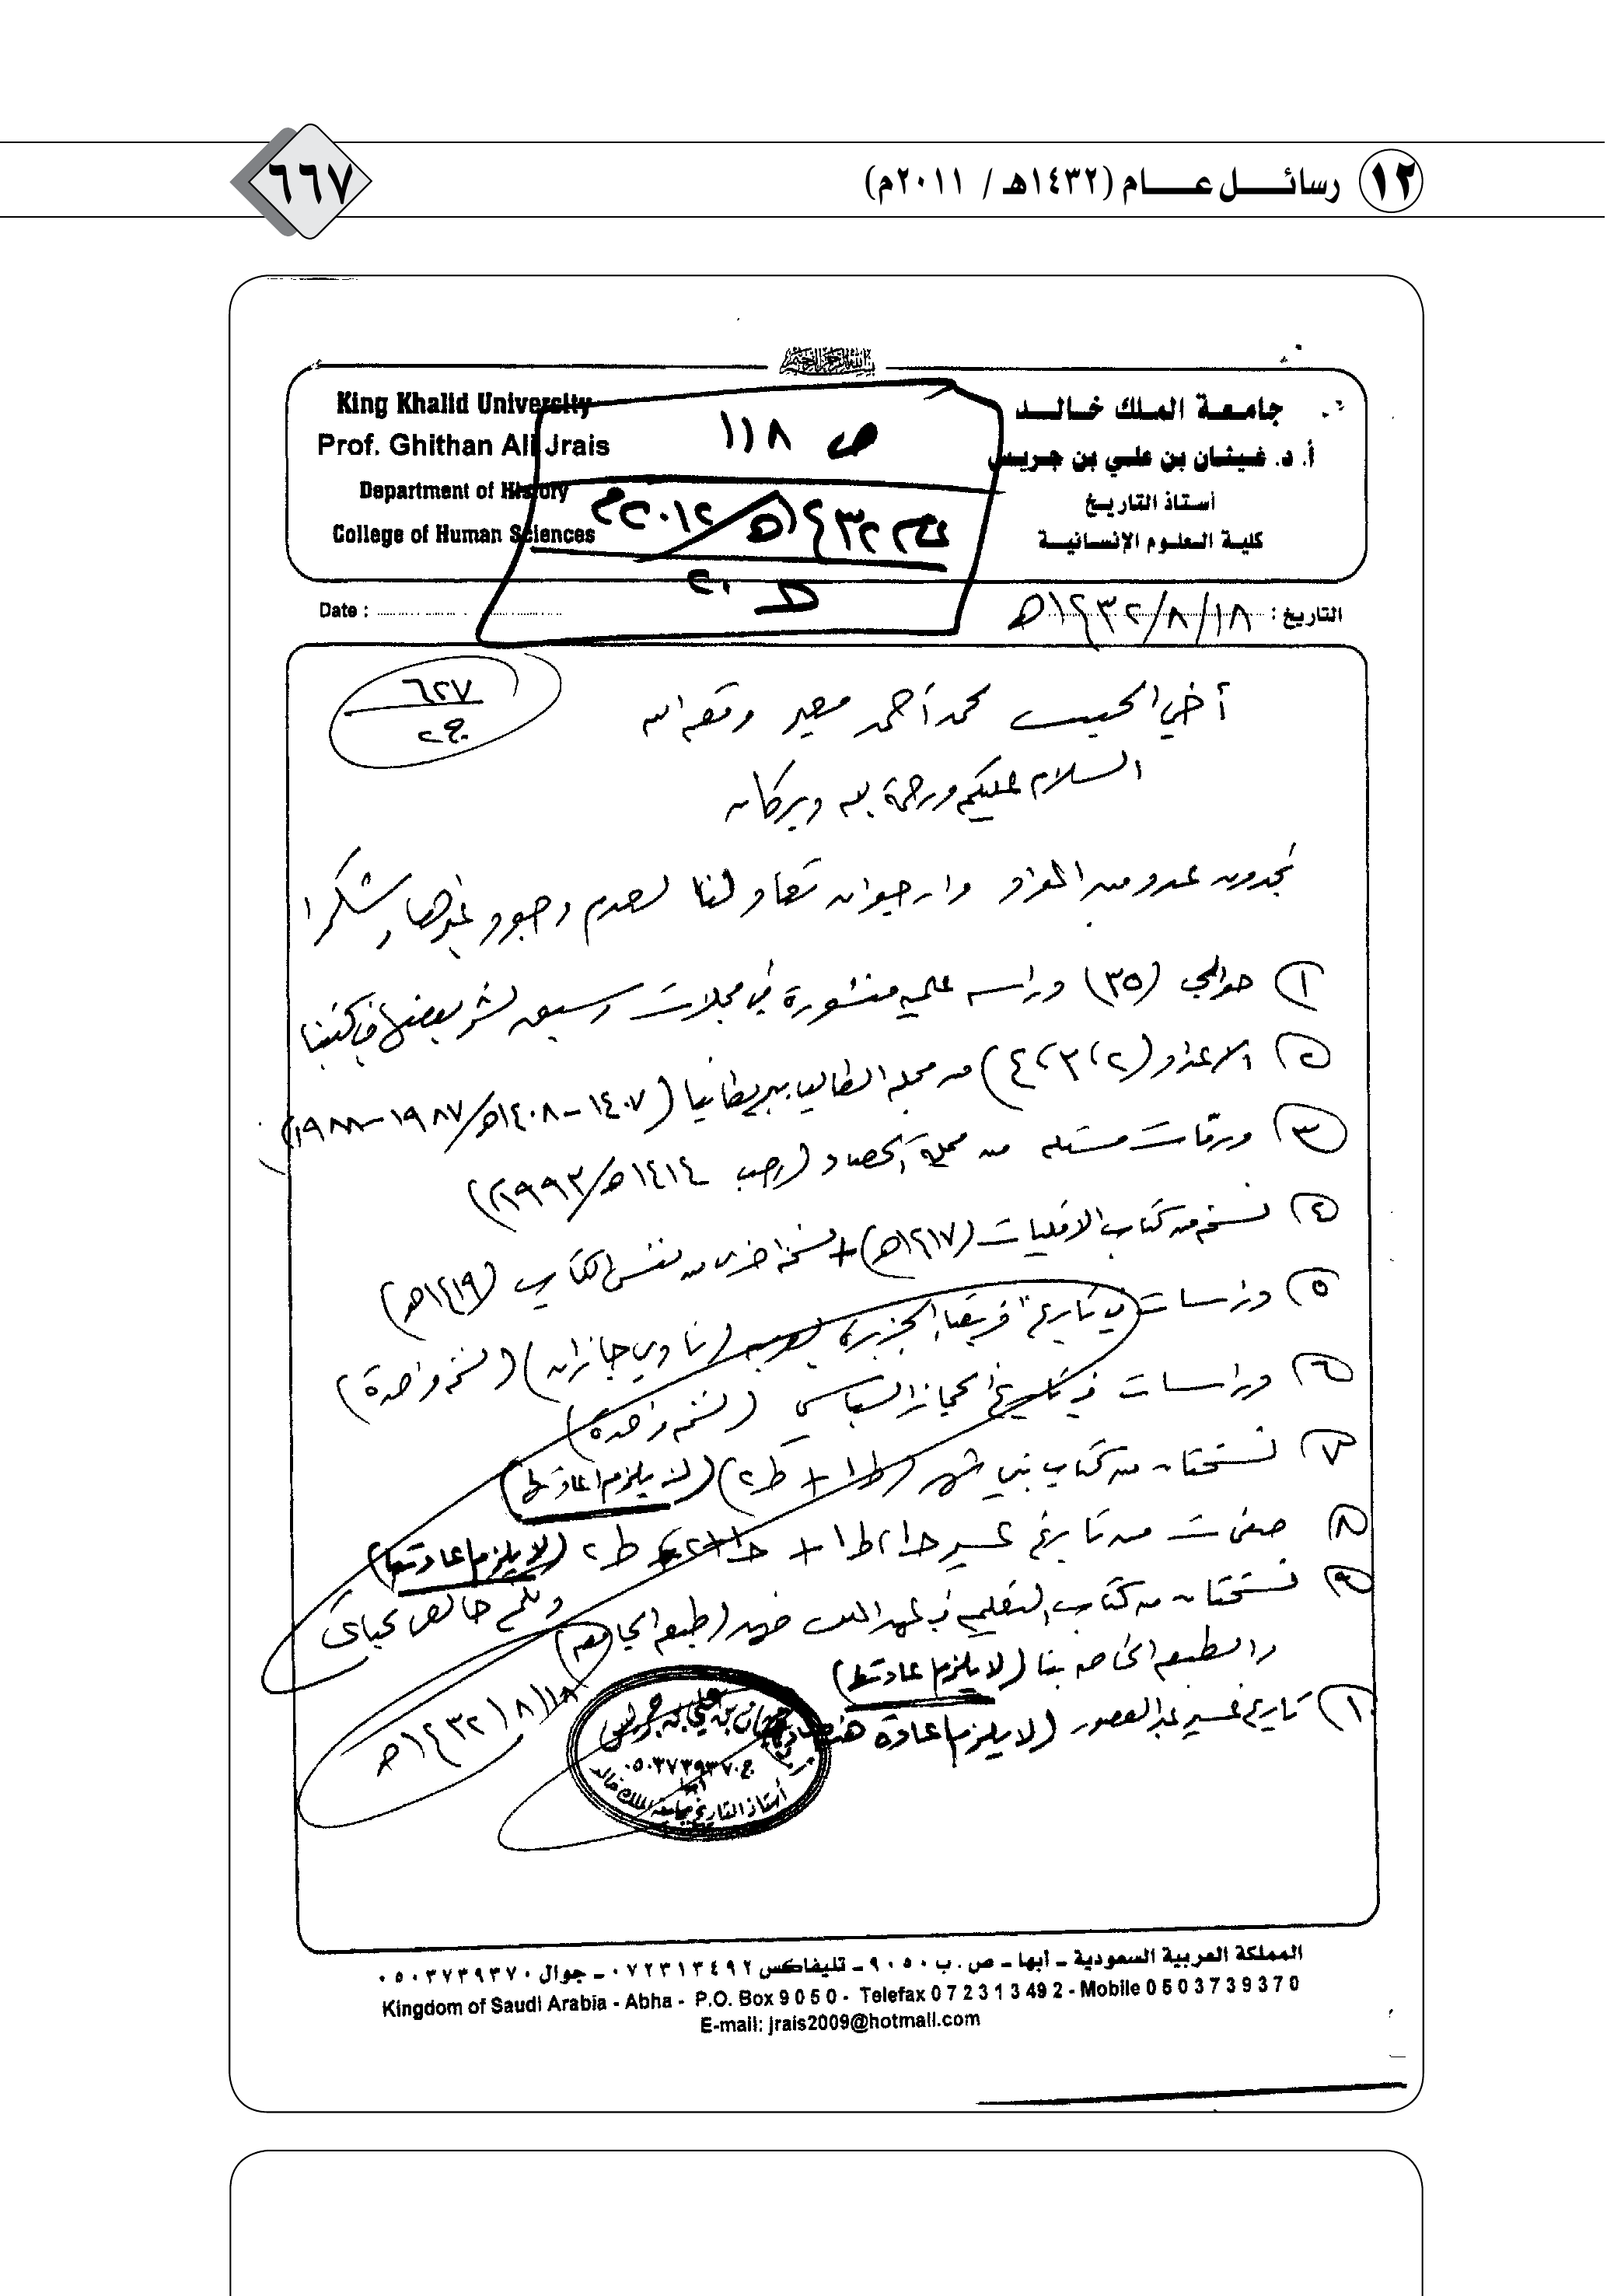 ١٢ رسائل عام (١٤٣٢هـ / ٢٠١١م)
٦٦٧
جامعة الملك خالد
أ. د. غيثان بن علي بن جريس
أستاذ التاريخ
كلية العلوم الإنسانية
King Khalid University
Prof. Ghithan Ali Jrais
Department of History
College of Human Sciences
ص ١١٨
١٤٣٢هـ/٢٠١٢م
ط ٢٠
التاريخ : ١٤٣٢/٨/١٨هـ
Date :
٦٢٧
ج٢
أخي الحبيب محمد أحمد معبر وفقه الله
السلام عليكم ورحمة الله وبركاته
تجدون عدد من المواد وارجو ان تعاد لنا لعدم وجود غيرها وشكرا
١) حوالي (٣٥) دراسه علميه منشورة في مجلات وسبق نشر بعضها في كتبنا
٢) الاعداد (٢، ٣، ٤) من مجلة الطالب ببريطانيا (١٤٠٧-١٤٠٨هـ/١٩٨٧-١٩٨٨)
٣) ورقات مستله من مجلة الحصاد (رجب ١٤١٤هـ/١٩٩٣م)
٤) نسخه من كتاب الاقليات (١٤١٧هـ) + نسخة اخرى من نفس الكتاب (١٤١٩هـ)
٥) دراسات في تاريخ افريقيا والجزيرة العربيه (نادي جازان) (نسخه واحدة)
٦) دراسات في تاريخ الحجاز السياسي (نسخه واحدة)
٧) نسختان من كتاب بني شهر (ط١ + ط٢) (لا يلزم اعادتها)
٨) من تاريخ عسير ج١ ط١ + ج١ ط٢ (لا يلزم اعادتها)
٩) نسختان من كتاب التعليم في عهد الملك فهد (طبعه الجامعه)
والطبعه الخاصه بنا (لا يلزم اعادتها)
١٠) تاريخ عسير عبر العصور (لا يلزم اعادة
ولكم خالص تحياتي
١٤٣٢/٨/١٨هـ
بن علي بن جريس
ج. ٠٥٠٣٧٣٩٣٧٠
أبها
أستاذ التاريخ بجامعة الملك خالد
المملكة العربية السعودية - أبها - ص . ب ٩٠٥٠ - تليفاكس ٠٧٢٣١٣٤٩٢ - جوال ٠٥٠٣٧٣٩٣٧٠
Kingdom of Saudi Arabia - Abha - P.O. Box 9 0 5 0 - Telefax 0 7 2 3 1 3 49 2 - Mobile 0 5 0 3 7 3 9 3 7 0
E-mail: jrais2009@hotmail.com